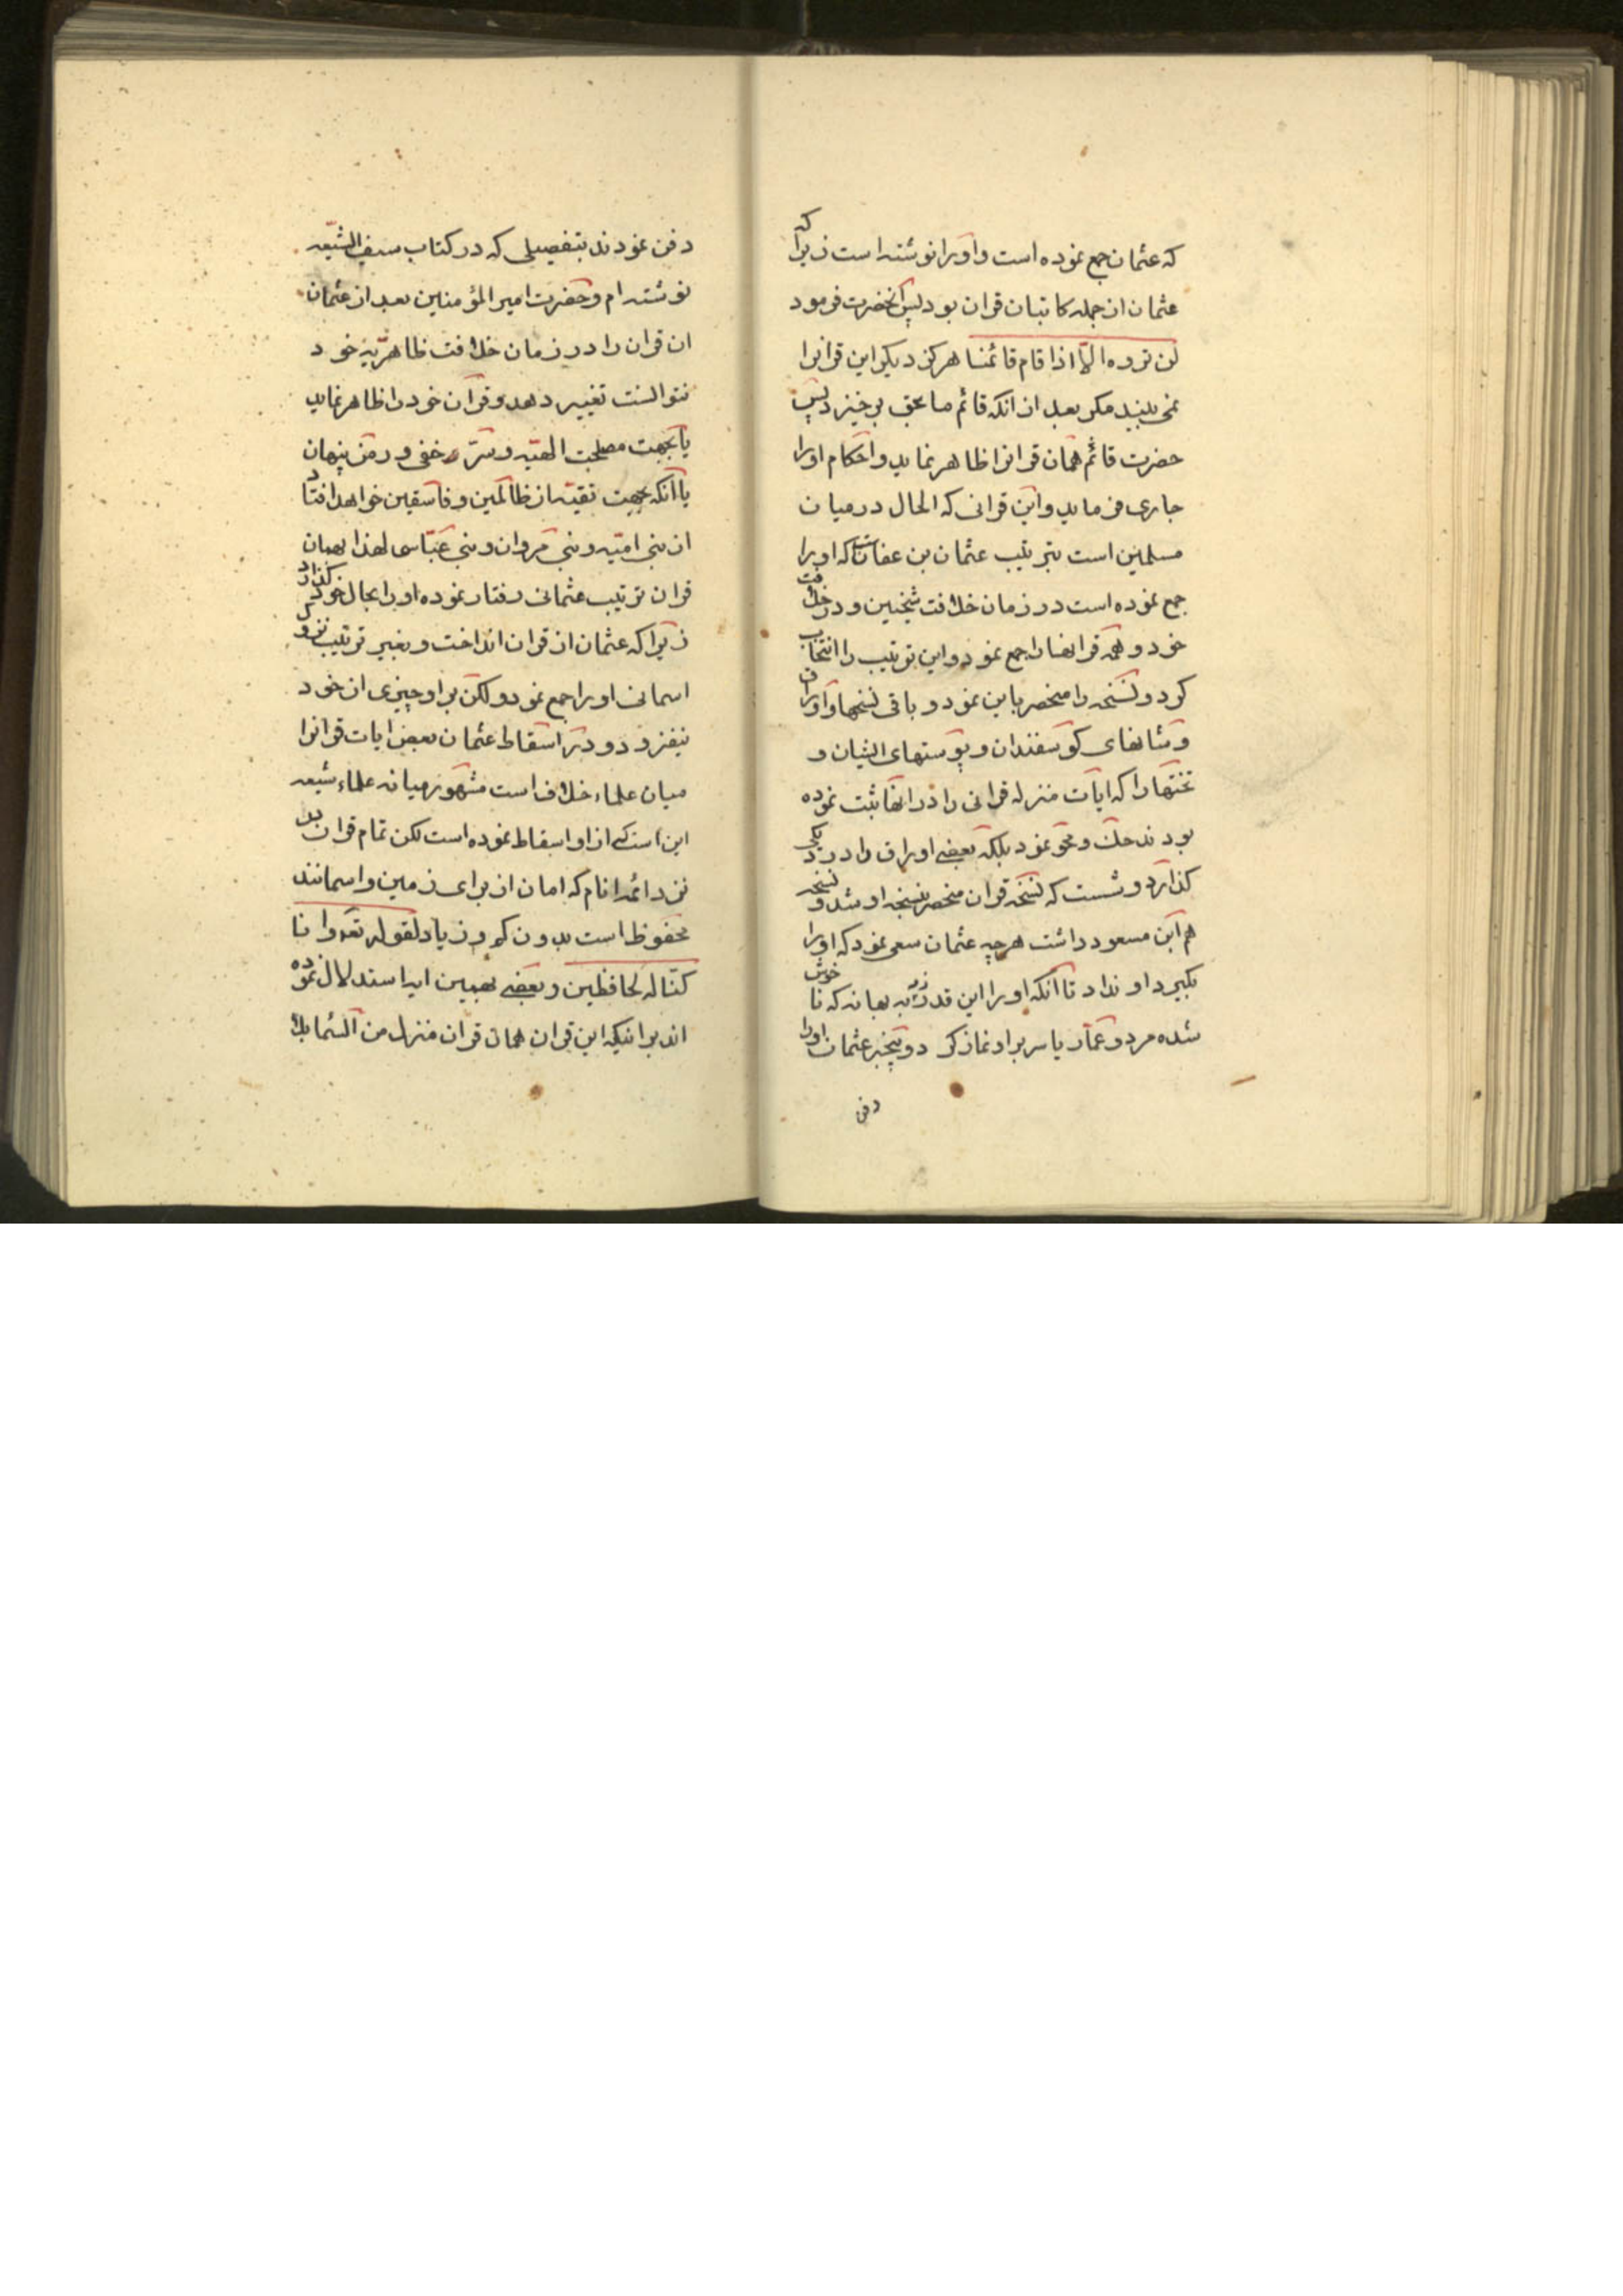 که عثمان جمع نموده است و او را نوشته است زیرا که
عثمان از جمله کاتبان قران بود پس آنحضرت فرمود
لن تروه الّا اذا قام قائمنا هرکز دیکر این قرانرا
نمی بینید مکر بعد از آنکه قائم ما بحق برخیزد پس
حضرت قائم همان قرانرا ظاهر نماید و احکام اورا
جاری فرماید و این قرانی که الحال در میان
مسلمین است بترتیب عثمان بن عفان است که اورا
جمع نموده است در زمان خلافت شیخین و در خلافت
خود و همه قرانها را جمع نمود و این ترتیب را انتخاب
کرد و نسخه را منحصر باین نمود و باقی نسخها و اوراق
و شانهای کوسفندان و پوستهای ایشان و
تختها را که ایات منزله قرانی را در انها ثبت نموده
بودند حک و محو نمود بلکه بعضے اوراق را در دیکی
کذارد و شست که نسخه قران منحصر بنسخه او شد و نسخه
هم ابن مسعود داشت هرچه عثمان سعی نمود که اورا
بکیرد او نداد تا آنکه اورا این قدر زد به بهانه که نا خوش
شده مرد و عمّار یاسر براو نماز کرد و بیخبر عثمان اورا
دفن
دفن نمودند بتفصیلی که در کتاب سیف الشیّعه
نوشته ام و حضرت امیر المؤمنین بعد از عثمان
ان قران را در زمان خلافت ظاهریّه خود
نتوانست تغییر دهد و قرآن خود را ظاهر نماید
یا بجهت مصلحت الهیّه و سرّ خفی و رمز پنهان
یا آنکه بجهت تقیّه از ظالمین و فاسقین خواهد افتاد
از بنی امیّه و بنی مروان و بنی عبّاس لهذا بهمان
قران ترتیب عثمانی رفتار نموده او را بحال خود کذارد
زیرا که عثمان از قران انداخت و بغیر ترتیب نزول
اسمانی اورا جمع نمود و لکن براو چیزی از خود
نیفزود و در اسقاط عثمان بعض ایات قرانرا
میان علماء خلاف است مشهور میانه علماء شیعه
این است که از او اسقاط نموده است لکن تمام قران بد
نزد ائمه انام که امان از برای زمین و اسمانند
محفوظ است بدون کم و زیاد لقوله تعه و انا
کنّا له لحافظین و بعضے بهمین ایه استدلال نموده
اند برانیکه این قران همان قران منزل من السّماء